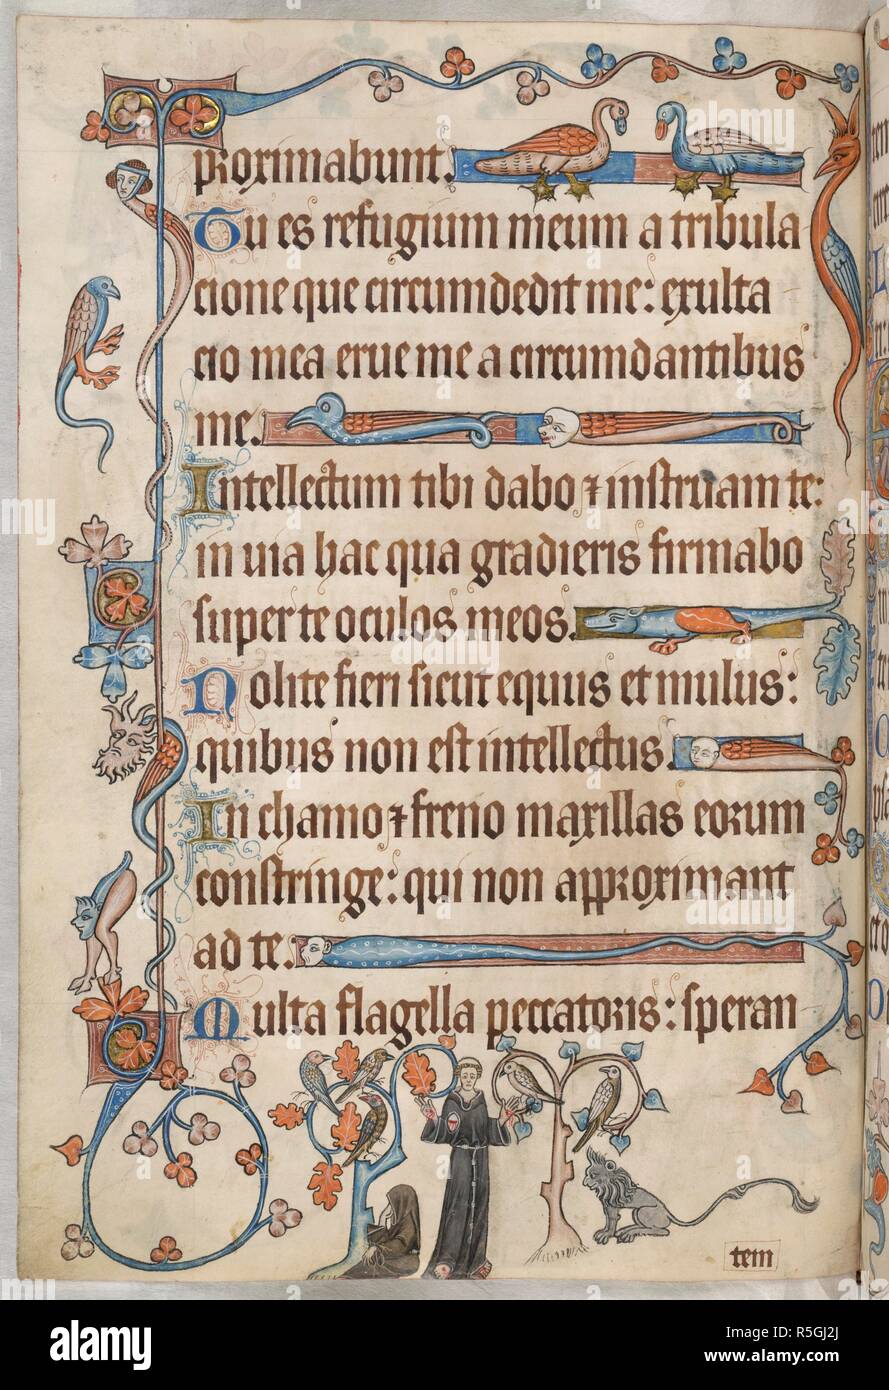 proximabunt.
Tu es refugium meum a tribula
cione que circumdedit me: exulta
cio mea erue me a circumdantibus
me.
Intellectum tibi dabo ⁊ instruam te:
in uia hac qua gradieris firmabo
super te oculos meos.
Nolite fieri sicut equus et mulus:
quibus non est intellectus.
In chamo ⁊ freno maxillas eorum
constringe: qui non approximant
ad te.
Multa flagella peccatoris: speran
tem
alamy
Image ID: R5GJ2J
www.alamy.com